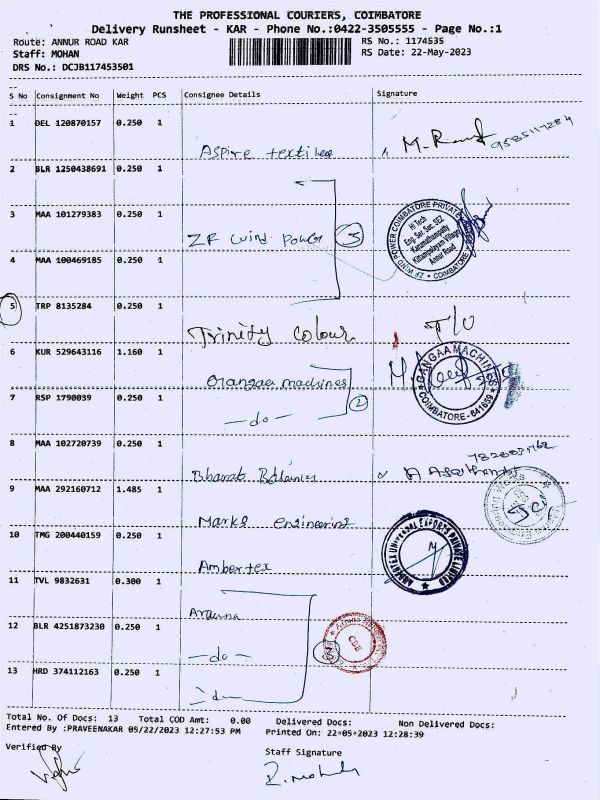 THE PROFESSIONAL COURIERS, COIMBATORE
Delivery Runsheet - KAR - Phone No.:0422-3505555 - Page No.:1
Route: ANNUR ROAD KAR
RS No.: 1174535
Staff: MOHAN
RS Date: 22-May-2023
DRS No.: DCJB117453501
S No Consignment No Weight PCS Consignee Details Signature
1 DEL 120870157 0.250 1
Aspire textiles
2 BLR 1250438691 0.250 1
3 MAA 101279383 0.250 1
ZF wind power 3
4 MAA 100469185 0.250 1
5 TRP 8135284 0.250 1
Trinity colour
6 KUR 529643116 1.160 1
Gangaa machines
7 RSP 1790039 0.250 1
-do- 2
GANGAA MACHINES
COIMBATORE - 641659
8 MAA 102720739 0.250 1
Bharat
9 MAA 292160712 1.485 1
Marks engineering
10 TMG 200440159 0.250 1
Ambertex
11 TVL 9832631 0.300 1
12 BLR 4251873230 0.250 1
-do- 3
CBE
13 HRD 374112163 0.250 1
Total No. Of Docs: 13 Total COD Amt: 0.00 Delivered Docs: Non Delivered Docs:
Entered By :PRAVEENAKAR 05/22/2023 12:27:53 PM Printed On: 22-05-2023 12:28:39
Verified By
Staff Signature